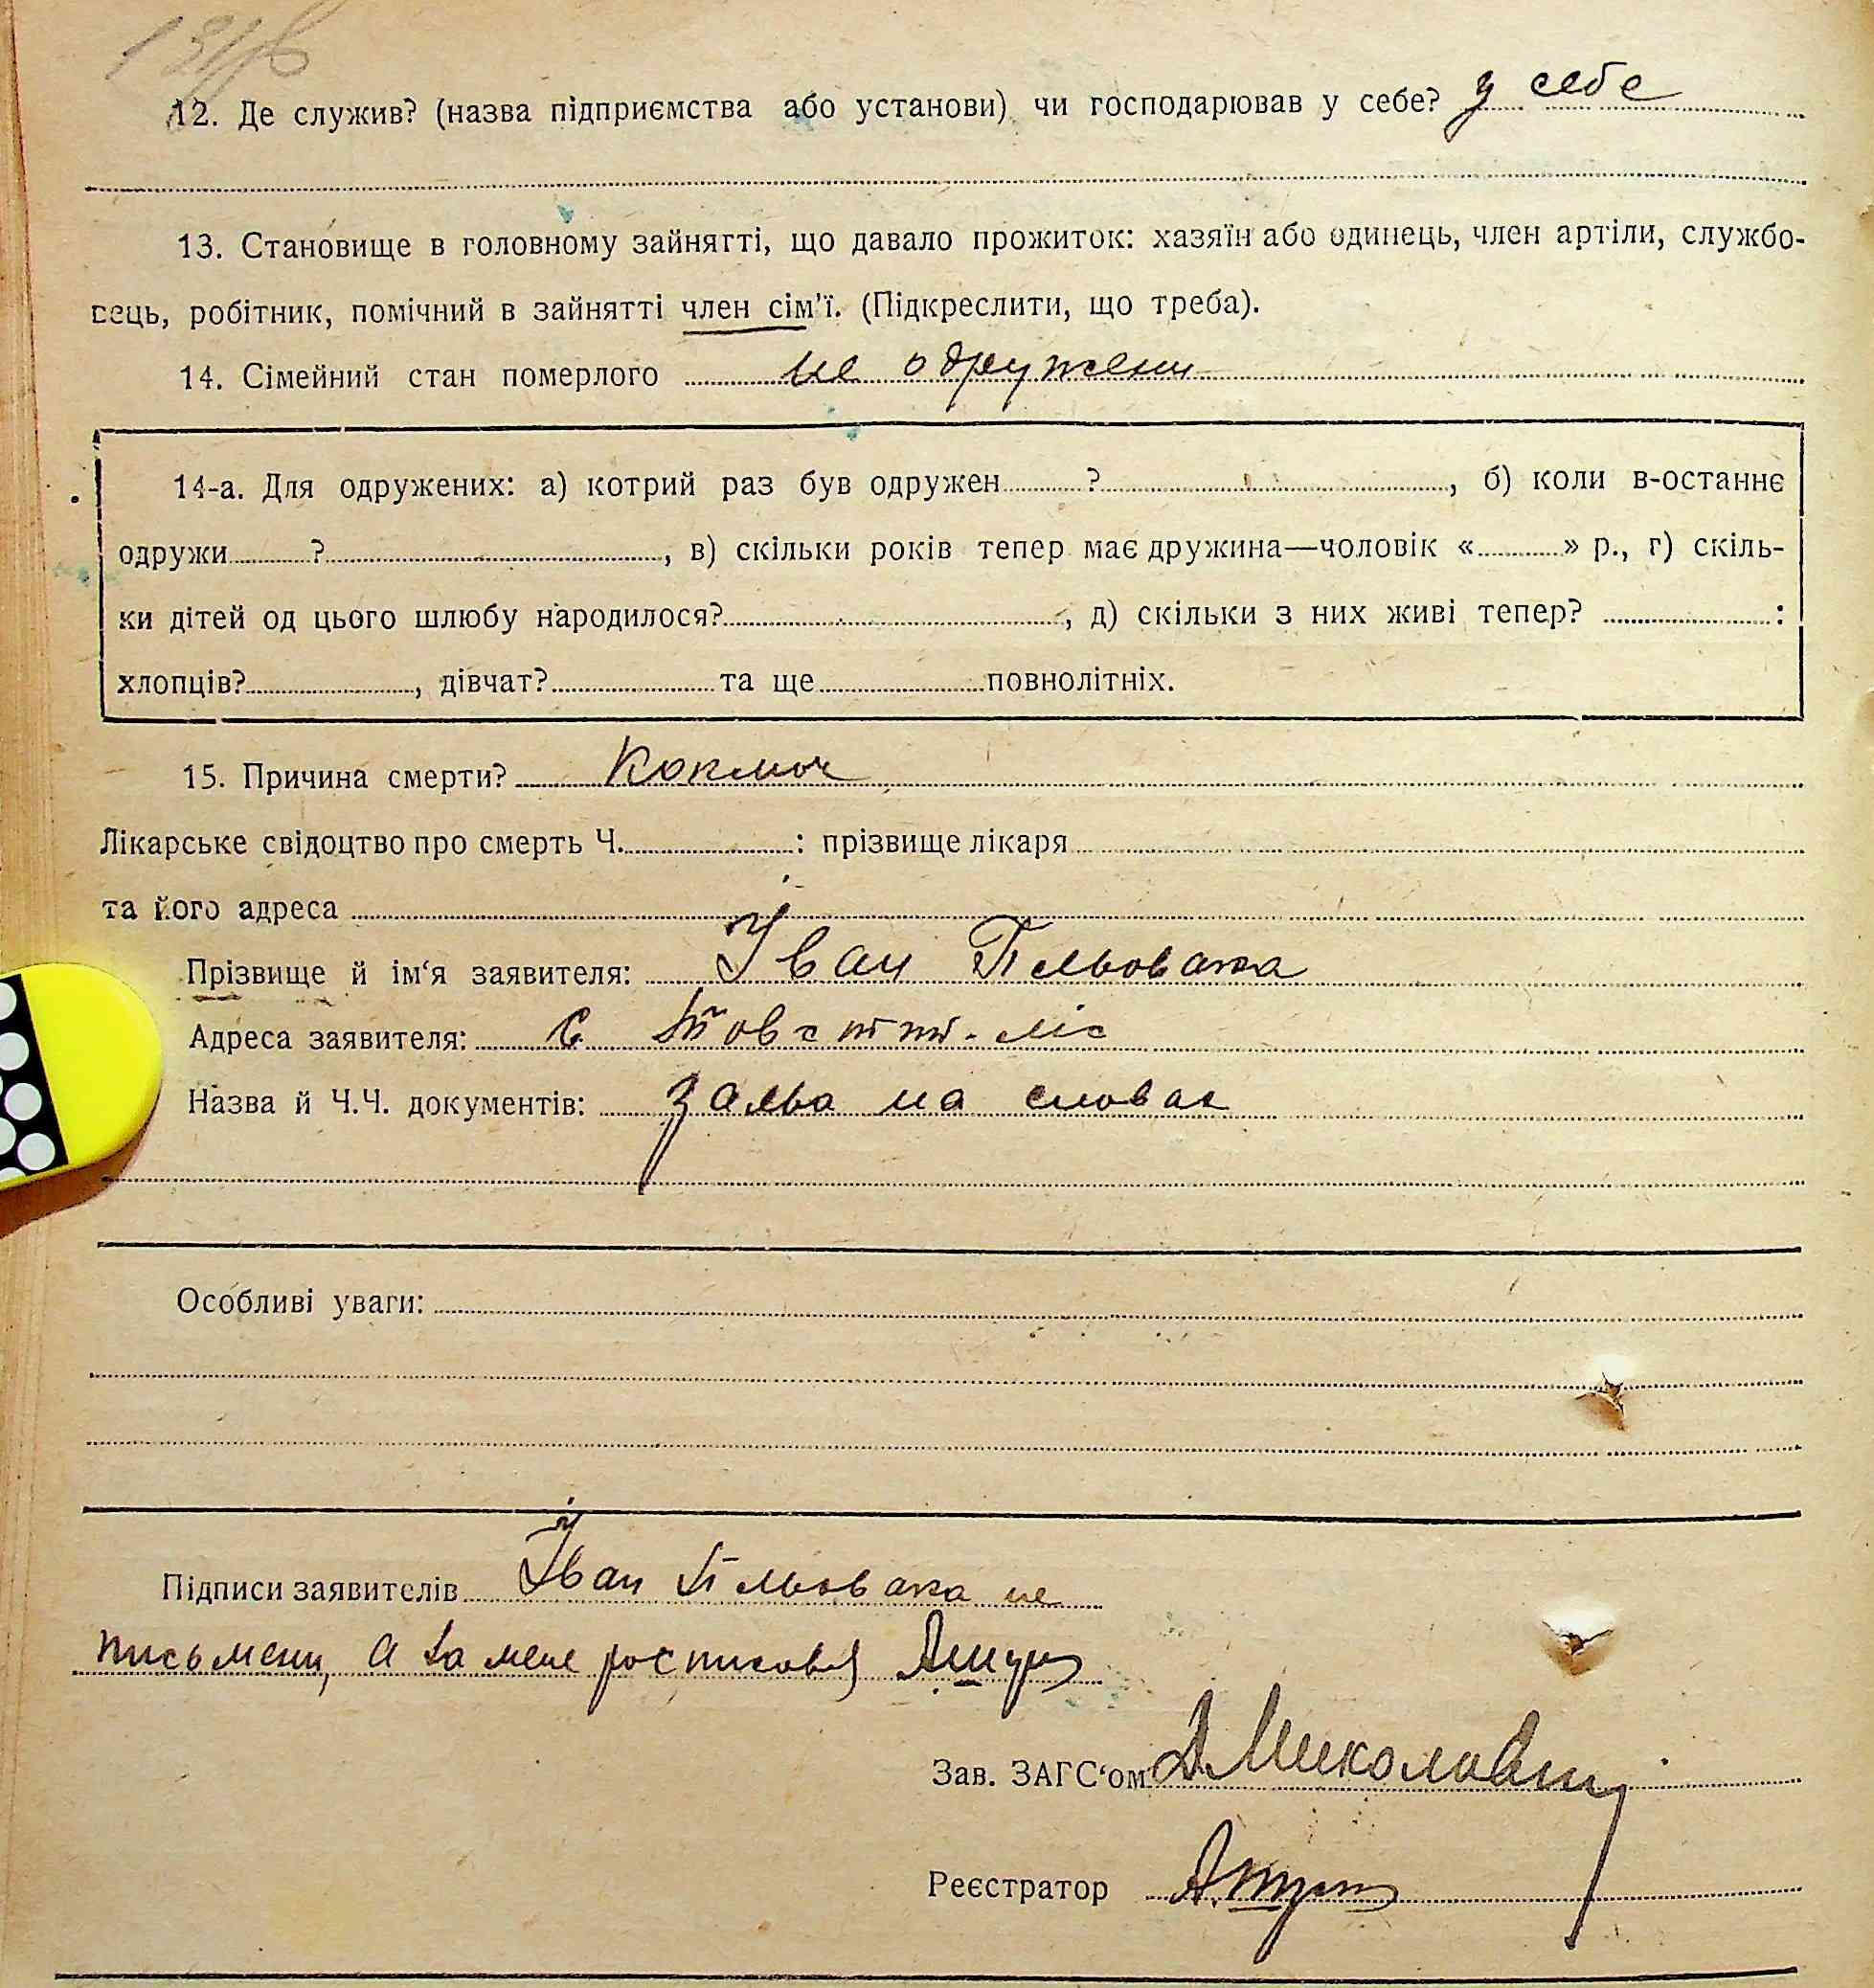 12. Де служив? (назва підприємства або установи) чи господарював у себе? у себе
13. Становище в головному зайнятті, що давало прожиток: хазяїн або одинець, член артіли, службо-
вець, робітник, помічний в зайнятті член сім'ї. (Підкреслити, що треба).
14. Сімейний стан померлого не одружени
14-а. Для одружених: а) котрий раз був одружен ? , б) коли в-останнє
одружи ? , в) скільки років тепер має дружина—чоловік « » р., г) скіль-
ки дітей од цього шлюбу народилося? , д) скільки з них живі тепер? :
хлопців? , дівчат? та ще повнолітніх.
15. Причина смерти? Коклюш
Лікарське свідоцтво про смерть Ч. : прізвище лікаря
та його адреса
Прізвище й ім‘я заявителя: Іван
Адреса заявителя: с. Товстий-ліс
Назва й Ч.Ч. документів: заява на словах
Особливі уваги:
Підписи заявителів Іван не
письмени, а за мене росписовся
Зав. ЗАГС‘ом
Реєстратор